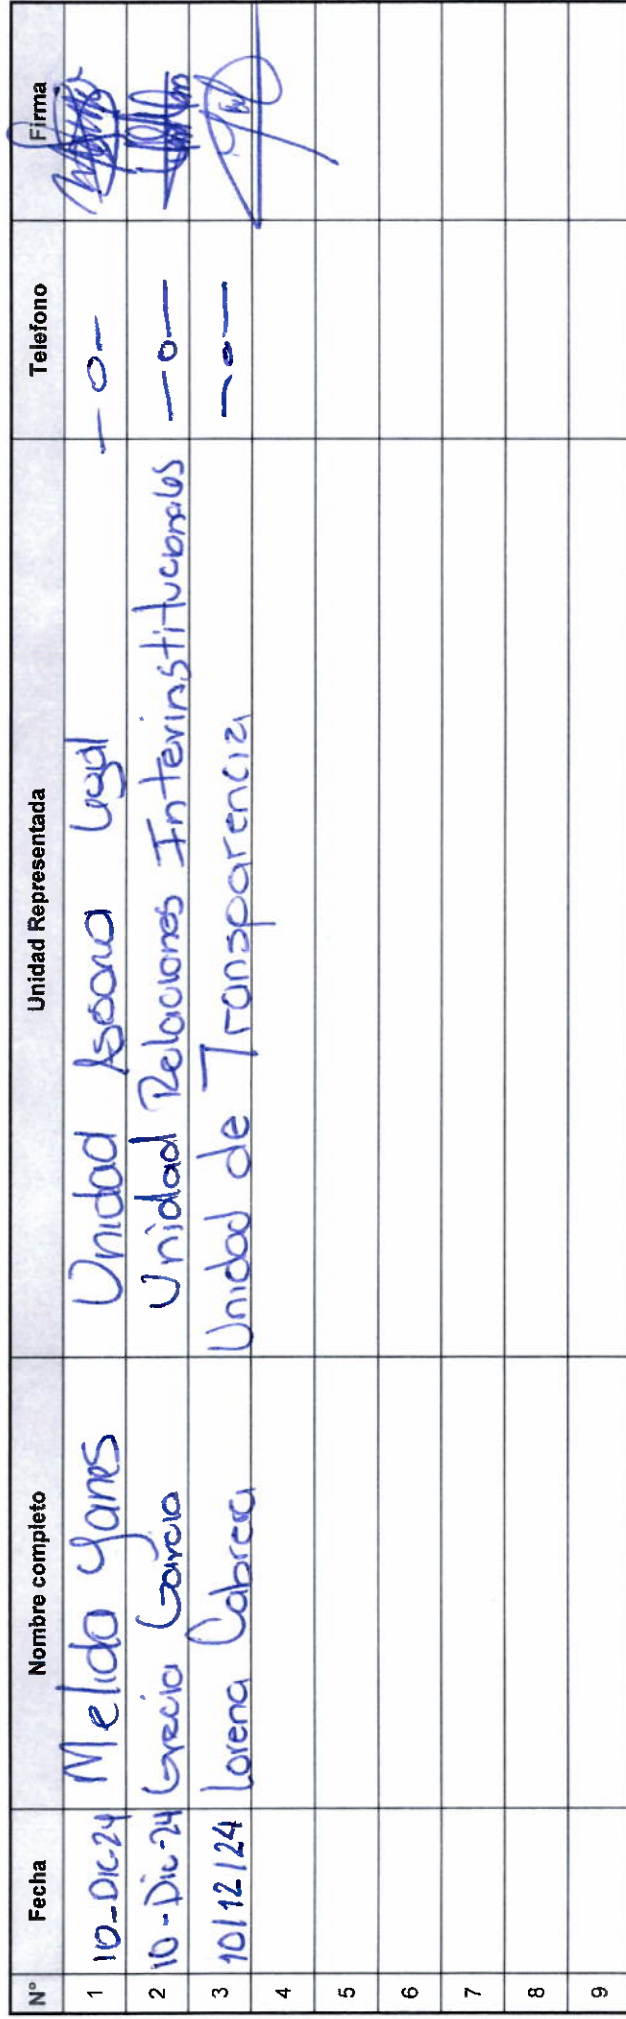 N° Fecha Nombre completo Unidad Representada Telefono Firma
1 10-Dic-24 Melida Yanes Unidad Asesoria Legal —o—
2 10-Dic-24 Grecia Garcia Unidad Relaciones Interinstitucionales —o—
3 10/12/24 Lorena Cabrera Unidad de Transparencia —o—
4
5
6
7
8
9